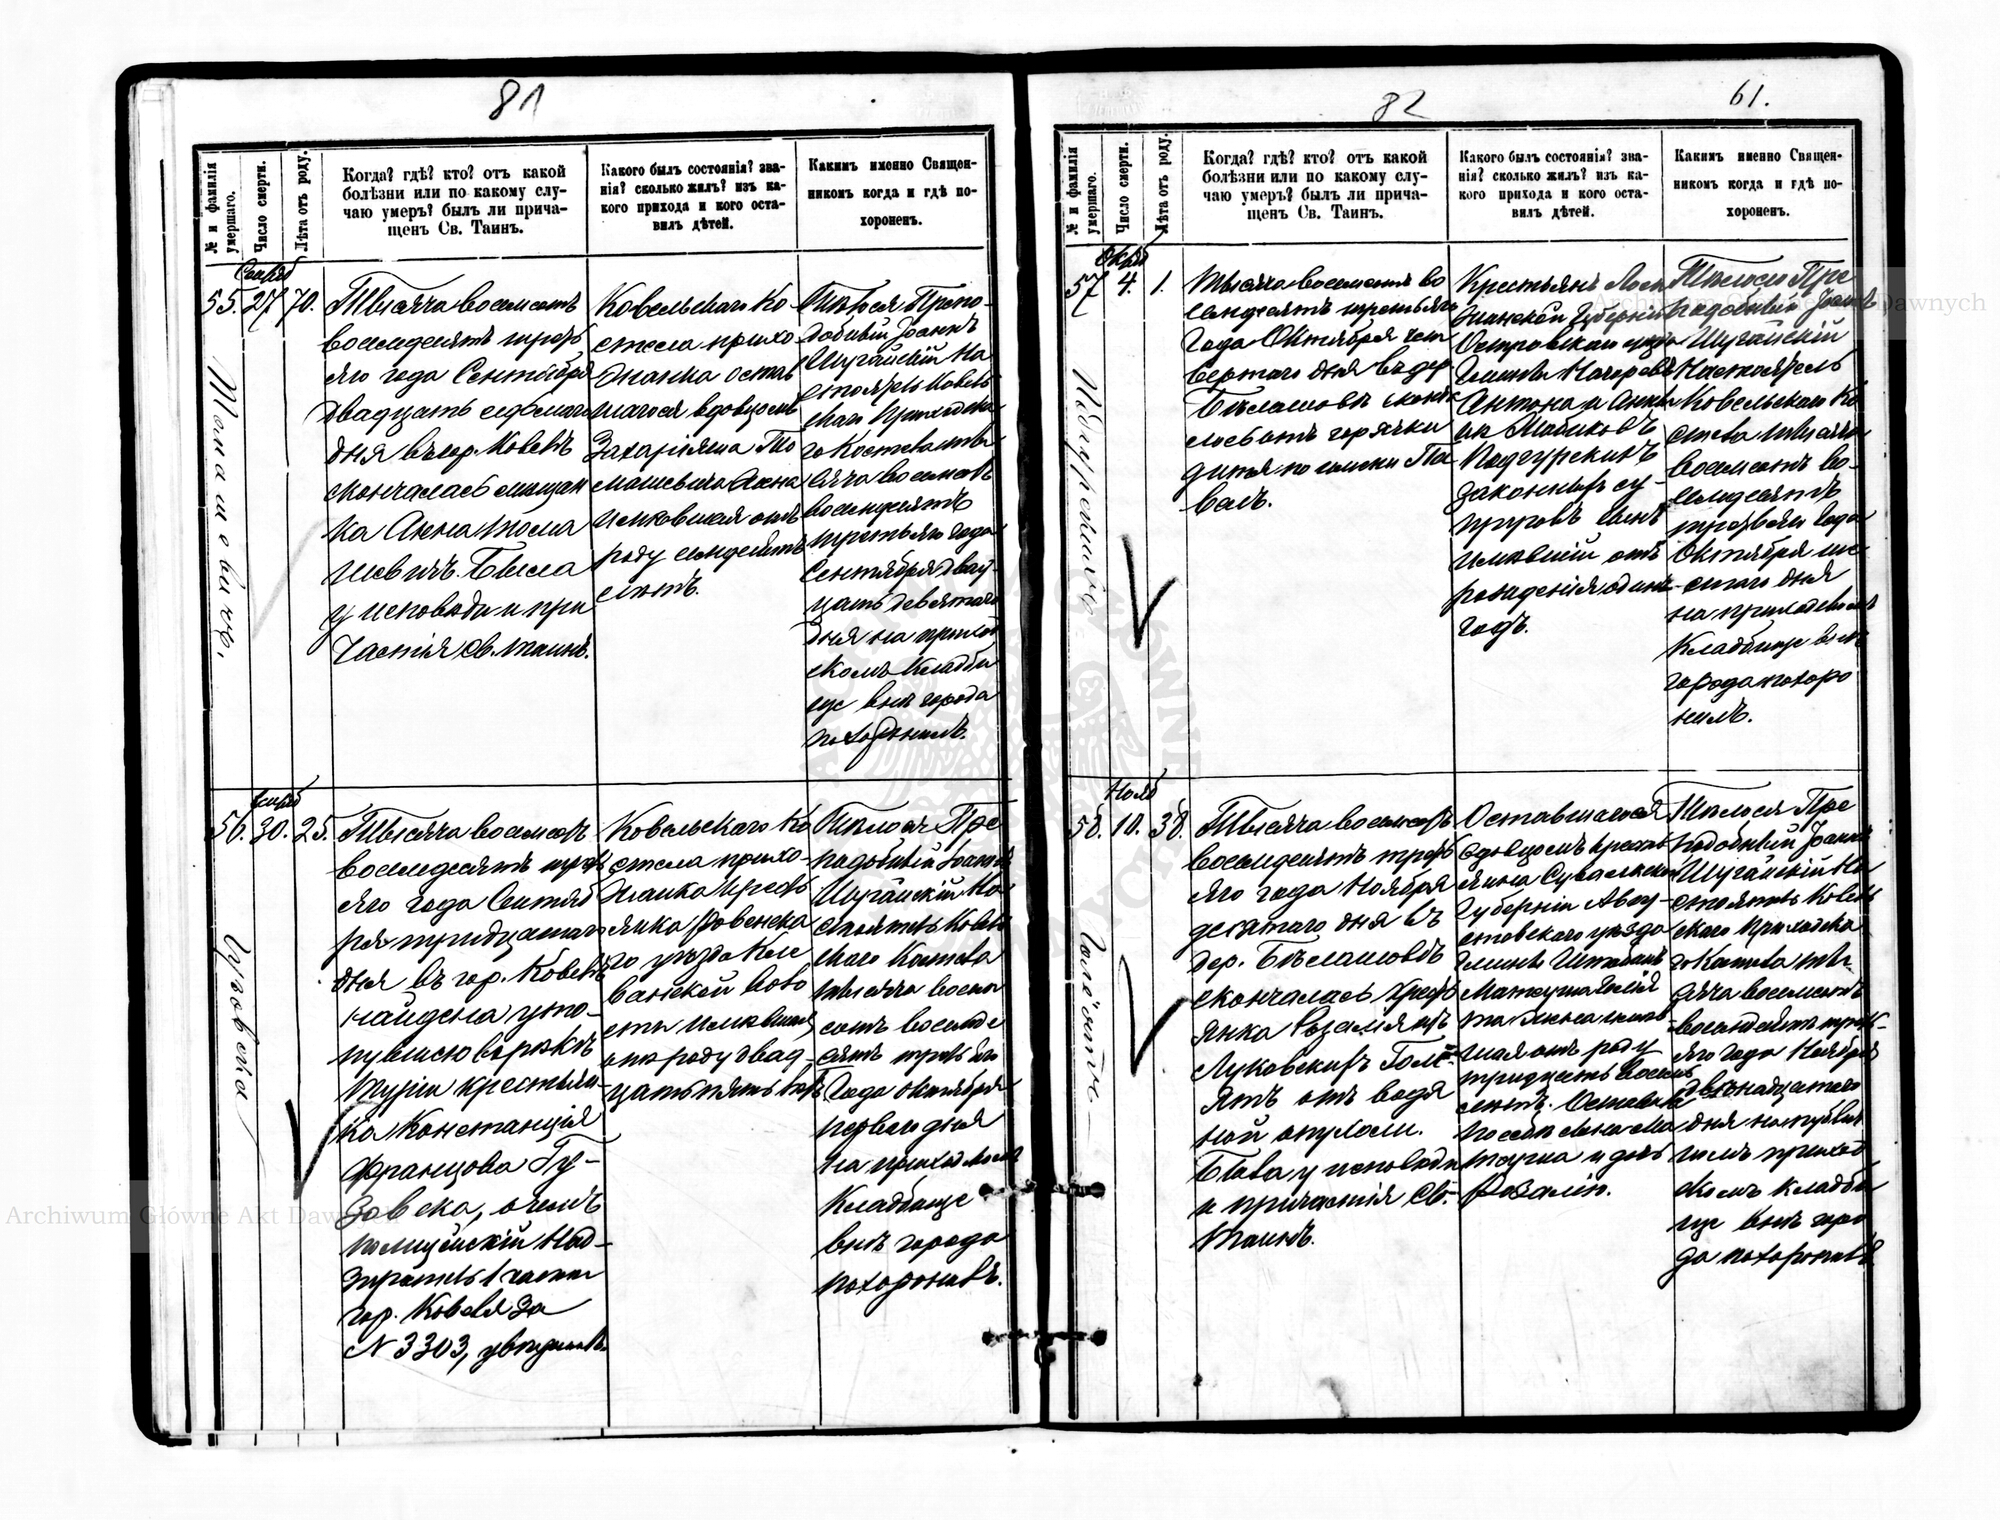 81
№ и фамилія умершаго.
Число смерти.
Лѣта отъ роду.
Когда? гдѣ? кто? отъ какой
болѣзни или по какому слу-
чаю умеръ? былъ ли прича-
щенъ Св. Таинъ.
Какого былъ состоянія? зва-
нія? сколько жилъ? изъ ка-
кого прихода и кого оста-
вилъ дѣтей.
Каимъ именно Священ-
никомъ когда и гдѣ по-
хороненъ.
55. 27 70.
Томашевичъ.
Тысяча восемсотъ
восемдесятъ треть
яго года Сентября
двадцать седьмаго
дня въ гор. Ковелѣ
скончалась мѣщан
ка Анна Тома
шевичъ. Была
у исповѣди и при
частія Св. таинъ.
Ковельскаго Ко-
стела прихо-
жанка остав
шагося вдовцомъ
Томашевича жена
имѣвшая отъ
роду семдесятъ
лѣтъ.
Тѣло ея Препо-
добный Іоаннъ
Шугайскій На
стоятель Ковель
скаго Приходска
го Костела тыс
яча восемсотъ
восемдесятъ
третьяго года
Сентября двад
цать девятаго
дня на приход
скомъ кладби
ще внѣ города
похоронилъ.
56. 30. 25.
Гузовска
Тысяча восемсотъ
восемдесятъ треть
яго года Сентяб
ря тридцатаго
дня въ гор. Ковелѣ
найдена уто-
нувшею въ рѣкѣ
Туріи крестьян
ка Констанція
Францова Гу-
зовска, о чемъ
полицейскій Над-
зиратель 1 части
гор. Ковеля за
№ 3303, увѣдомилъ.
Ковельскаго Ко
стела прихо-
жанка крест
янка Ровенска
го уѣзда
ванской воло
сти имѣвшая
отъ роду двад-
цать пять лѣтъ
Тѣло ея Пре
подобный Іоаннъ
Шугайскій На
стоятель Ковель
скаго Костела
тысяча восем
сотъ восемде
сятъ третьяго
года октября
перваго дня
на приходскомъ
кладбище
внѣ города
похоронилъ.
82
61.
№ и фамилія умершаго.
Число смерти.
Лѣта отъ роду.
Когда? гдѣ? кто? отъ какой
болѣзни или по какому слу-
чаю умеръ? былъ ли прича-
щенъ Св. Таинъ.
Какого былъ состоянія? зва-
нія? сколько жилъ? изъ ка-
кого прихода и кого оста-
вилъ дѣтей.
Каимъ именно Священ-
никомъ когда и гдѣ по-
хороненъ.
57 4. 1.
Тысяча восемсотъ во
семдесятъ третьяго
года Октября чет
вертаго дня въ дер
Бѣлашовѣ сконча
лось отъ горячки
дитя по имени Па
велъ.
Крестьянъ Лом
жинской Губерніи
Островскаго уѣзда
Антона и Анны
Подгурскихъ
законныхъ су-
пруговъ сынъ
имѣвшій отъ
рожденія одинъ
годъ.
Тѣло его Пре
подобный Іоаннъ
Шугайскій
Настоятель
Ковельскаго Ко
стела тысяча
восемсотъ во-
семдесятъ
третьяго года
Октября ше-
стаго дня
на приходскомъ
кладбище внѣ
города похоро
нилъ.
58. 10. 38.
Тысяча восемсотъ
восемдесятъ треть
яго года Ноября
десятаго дня въ
дер. Бѣлашовѣ
скончалась крест
янка Розалія изъ
Луковскихъ
отъ водя
ной опухоли.
Была у исповѣди
и причастія Св.
Таинъ.
Оставшагося
вдовцомъ крест
янина Сувалкской
Губерніи Авгу-
стовскаго уѣзда
жена имѣв
шая отъ роду
тридцать восемь
лѣтъ. Оставила
Розалію.
Тѣло ея Пре
подобный Іоаннъ
Шугайскій На
стоятель Ковель
скаго Приходска
го Костела тыс
яча восемсотъ
восемдесятъ треть-
яго года Ноября
двѣнадцатаго
дня на
приход
скомъ кладби
ще внѣ горо
да похоронилъ
Archiwum Główne Akt Dawnych